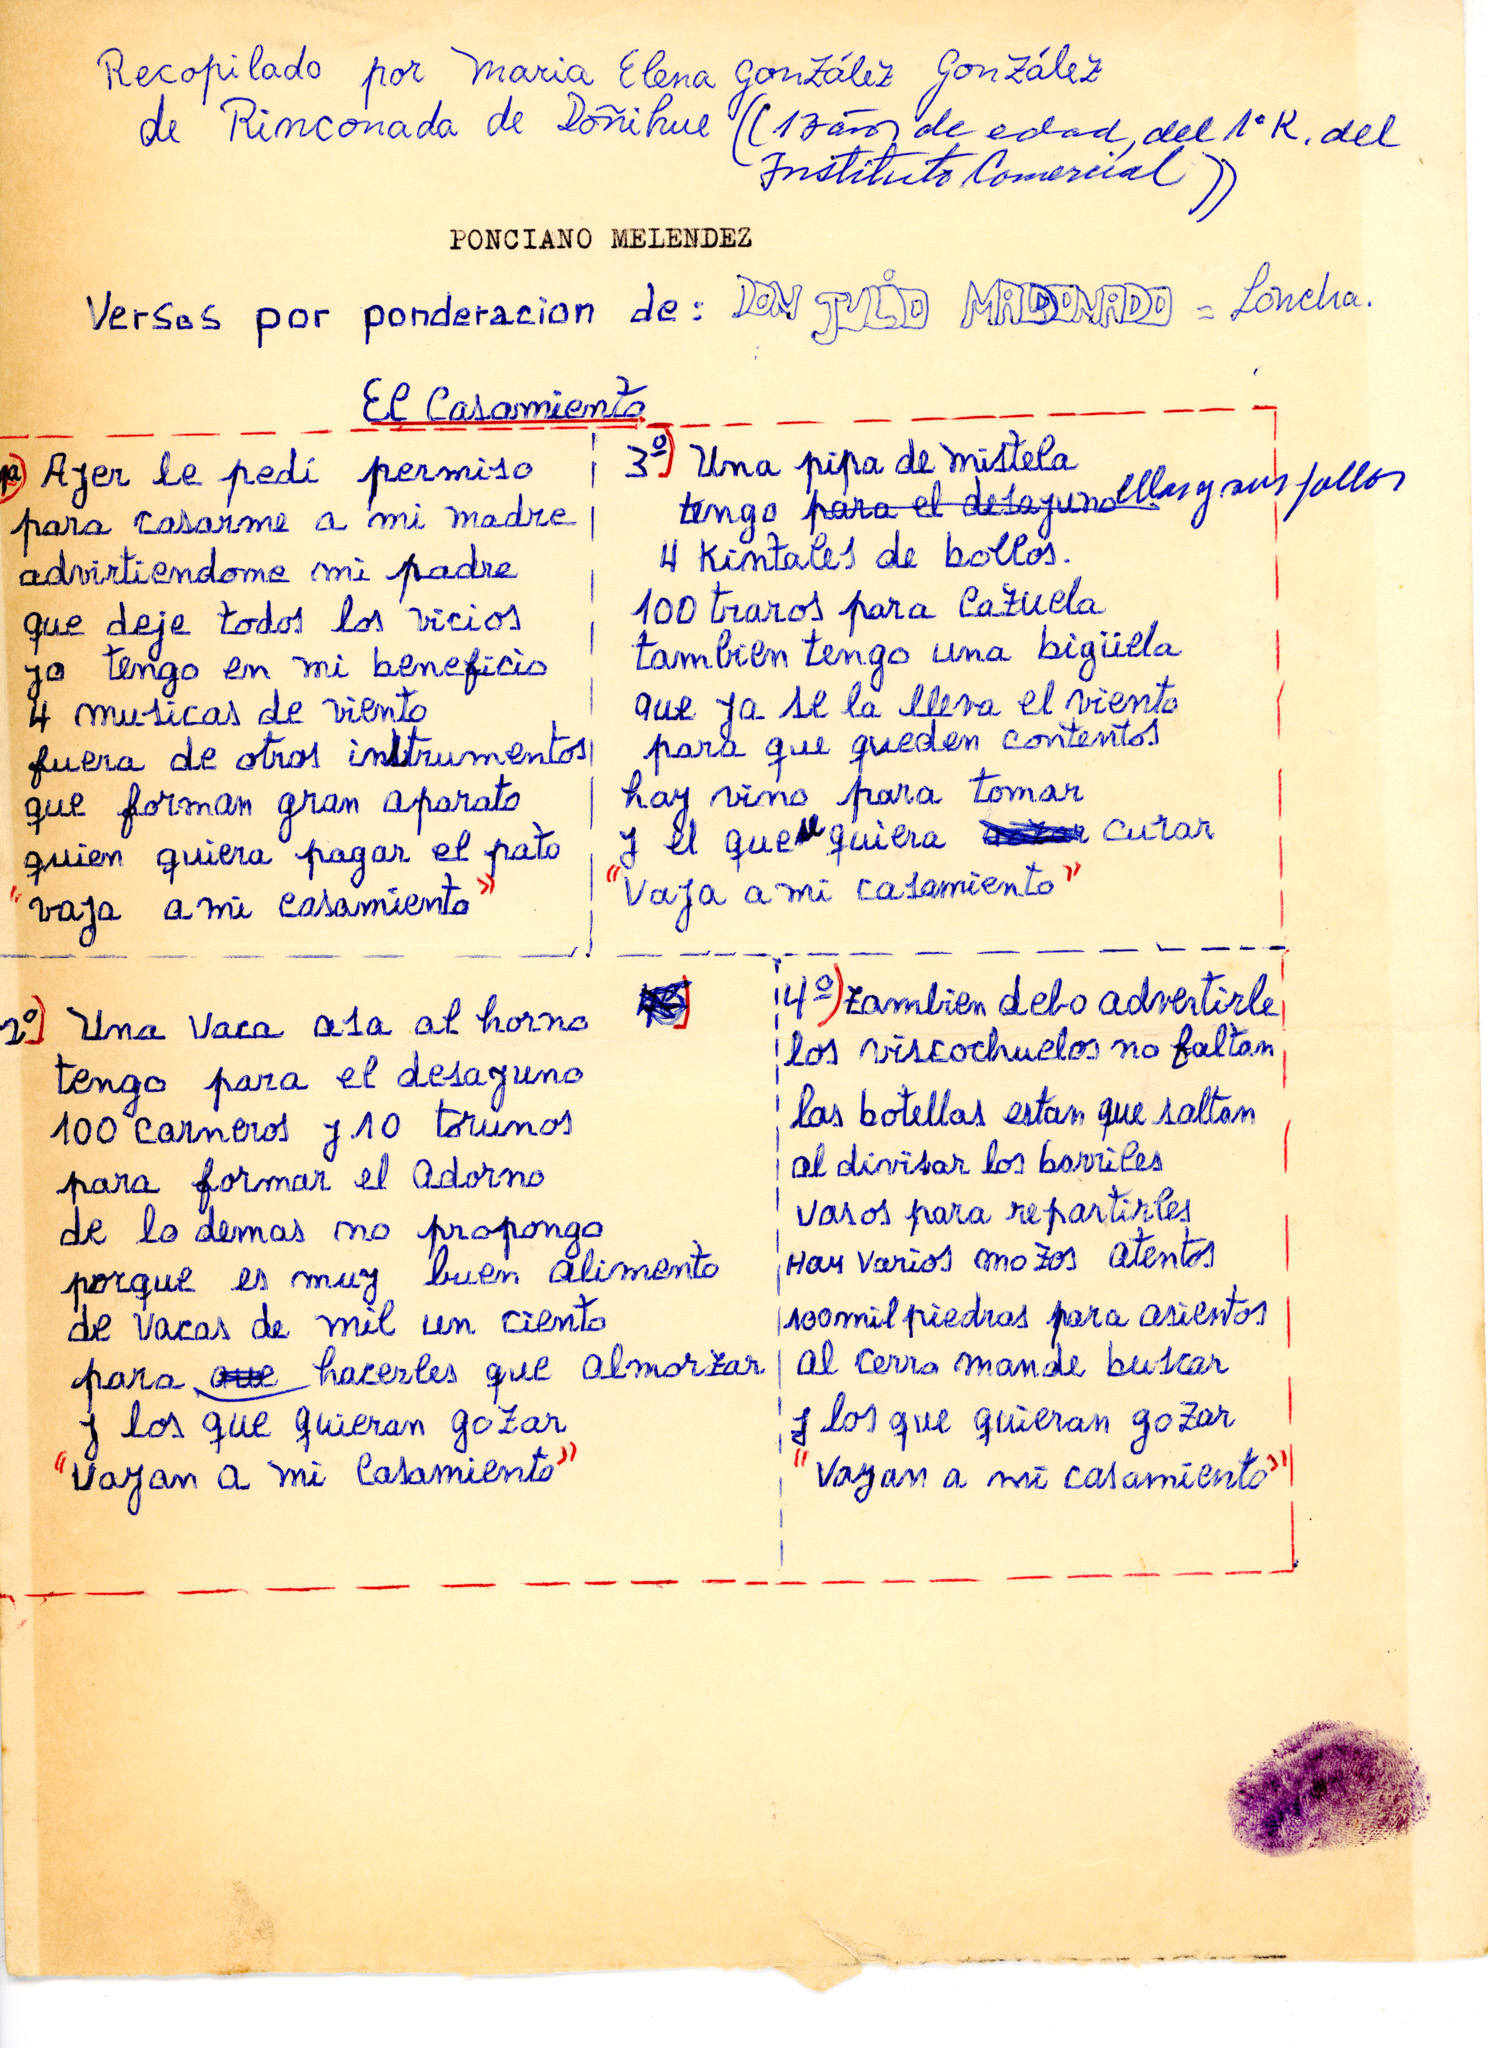 Recopilado por Maria Elena González González
de Rinconada de Doñihue ((17 años de edad, del 1º K. del
Instituto Comercial))
PONCIANO MELENDEZ
Versos por ponderacion de: DON JULIO MALDONADO = Loncha.
El Casamiento
1º) Ayer le pedí permiso
para casarme a mi madre
advirtiendome mi padre
que deje todos los vicios
yo tengo en mi beneficio
4 musicas de viento
fuera de otros instrumentos
que forman gran aparato
quien quiera pagar el pato
"vaya a mi casamiento"
2º) Una vaca asa al horno
tengo para el desayuno
100 carneros y 10 torunos
para formar el adorno
de lo demas no propongo
porque es muy buen alimento
de vacas de mil un ciento
para que hacerles que almorzar
y los que quieran gozar
"Vayan a mi casamiento"
3º) Una pipa de mistela
tengo para el desayuno ellas y sus
4 Kintales de bollos.
100 traros para cazuela
tambien tengo una bigüela
que ya se la lleva el viento
para que queden contentos
hay vino para tomar
y el que quiera curar
"Vaya a mi casamiento"
4º) tambien debo advertirle
los viscochuelos no faltan
las botellas estan que saltan
al divisar los barriles
vasos para repartirles
Hay varios mozos atentos
100 mil piedras para asientos
al cerro mande buscar
y los que quieran gozar
"Vayan a mi casamiento"